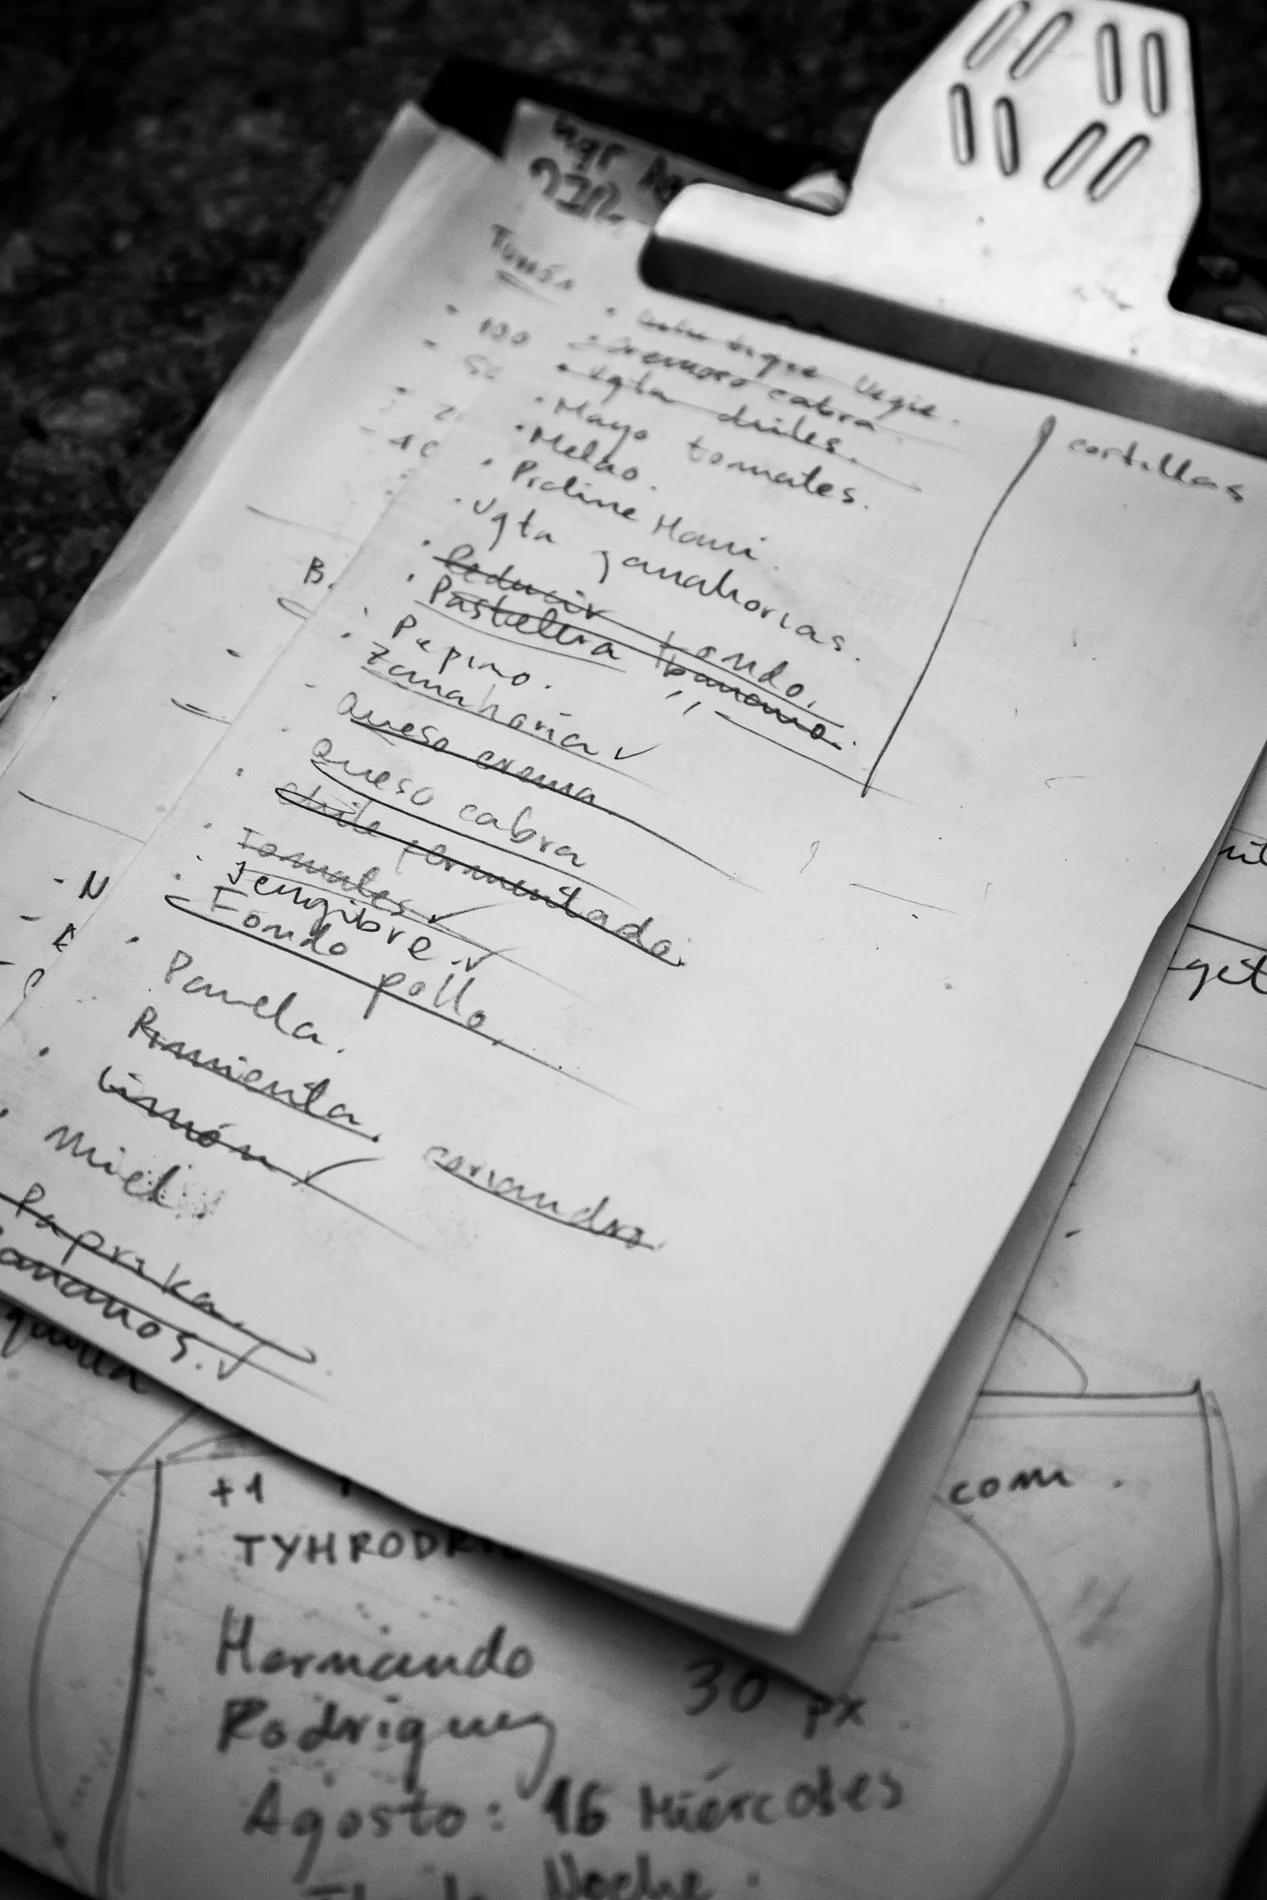 cremoso cabra
vgta chiles.
Mayo tomates.
Melao.
Praline Mani
vgta zanahorias.
Reducir fondo.
Pastelera banano.
Pepino.
Zanahoria ✓
Queso crema
Queso cabra
chile fermentado.
Tomates ✓
Jengibre. ✓
Fondo pollo.
Panela.
Pimienta. coriandro.
Limón ✓
Miel.
Paprika.
Bananos. ✓
costillas
B.
100
+1
com.
Hernando
Rodriguez
30 px.
Agosto: 16 Miércoles
Noche.